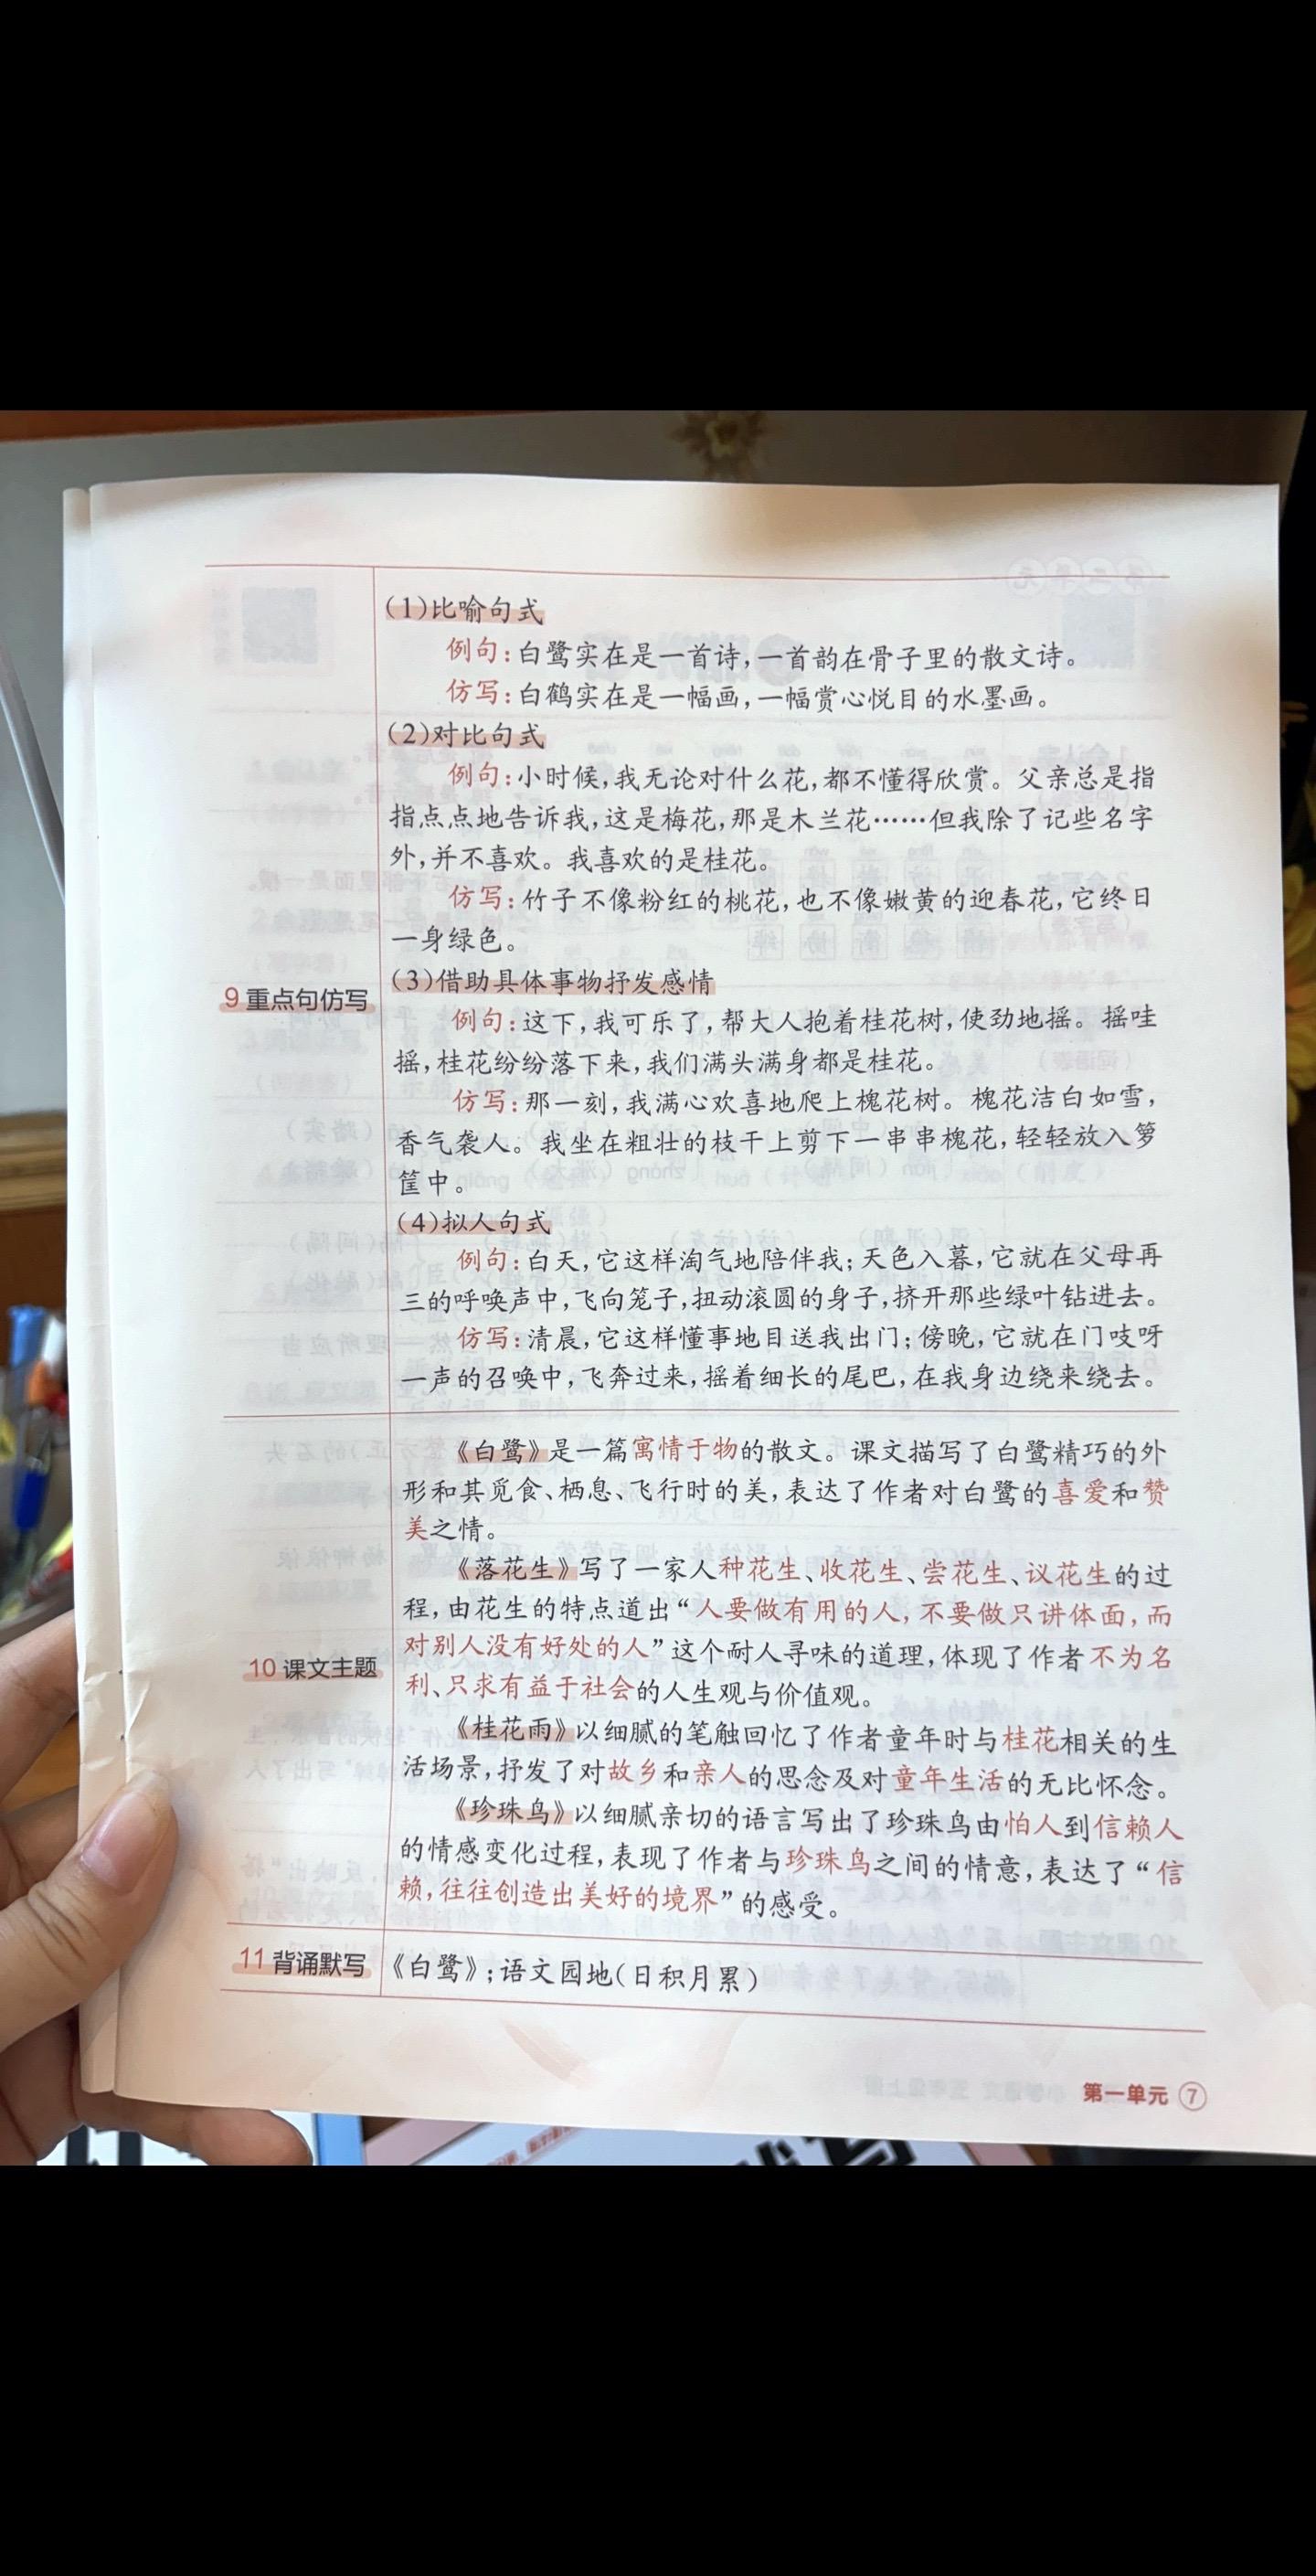 (1)比喻句式
例句:白鹭实在是一首诗,一首韵在骨子里的散文诗。
仿写:白鹤实在是一幅画,一幅赏心悦目的水墨画。
(2)对比句式
例句:小时候,我无论对什么花,都不懂得欣赏。父亲总是指
指点点地告诉我,这是梅花,那是木兰花……但我除了记些名字
外,并不喜欢。我喜欢的是桂花。
仿写:竹子不像粉红的桃花,也不像嫩黄的迎春花,它终日
一身绿色。
9 重点句仿写
(3)借助具体事物抒发感情
例句:这下,我可乐了,帮大人抱着桂花树,使劲地摇。摇哇
摇,桂花纷纷落下来,我们满头满身都是桂花。
仿写:那一刻,我满心欢喜地爬上槐花树。槐花洁白如雪,
香气袭人。我坐在粗壮的枝干上剪下一串串槐花,轻轻放入箩
筐中。
(4)拟人句式
例句:白天,它这样淘气地陪伴我;天色入暮,它就在父母再
三的呼唤声中,飞向笼子,扭动滚圆的身子,挤开那些绿叶钻进去。
仿写:清晨,它这样懂事地目送我出门;傍晚,它就在门吱呀
一声的召唤中,飞奔过来,摇着细长的尾巴,在我身边绕来绕去。
《白鹭》是一篇寓情于物的散文。课文描写了白鹭精巧的外
形和其觅食、栖息、飞行时的美,表达了作者对白鹭的喜爱和赞
美之情。
《落花生》写了一家人种花生、收花生、尝花生、议花生的过
程,由花生的特点道出“人要做有用的人,不要做只讲体面,而
对别人没有好处的人”这个耐人寻味的道理,体现了作者不为名
10 课文主题
利、只求有益于社会的人生观与价值观。
《桂花雨》以细腻的笔触回忆了作者童年时与桂花相关的生
活场景,抒发了对故乡和亲人的思念及对童年生活的无比怀念。
《珍珠鸟》以细腻亲切的语言写出了珍珠鸟由怕人到信赖人
的情感变化过程,表现了作者与珍珠鸟之间的情意,表达了“信
赖,往往创造出美好的境界”的感受。
11 背诵默写
《白鹭》;语文园地(日积月累)
第一单元 7